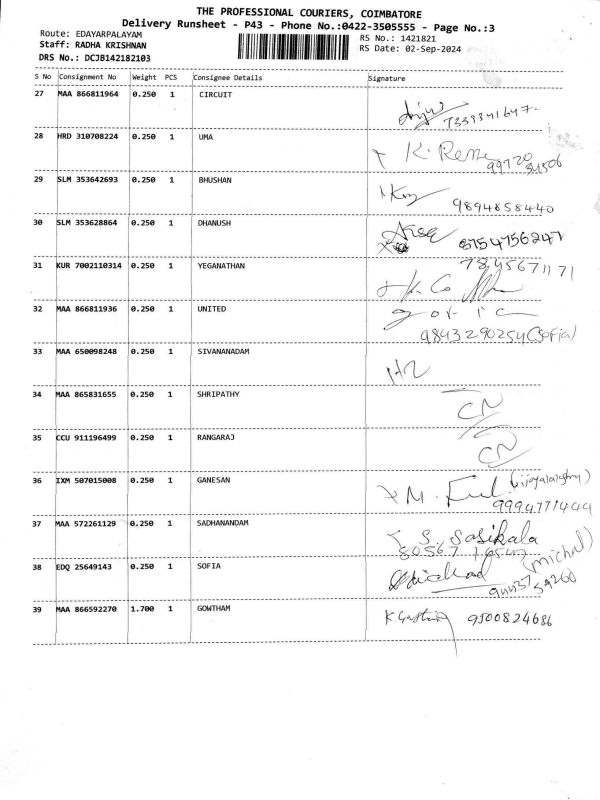 THE PROFESSIONAL COURIERS, COIMBATORE
Delivery Runsheet - P43 - Phone No.:0422-3505555 - Page No.:3
Route: EDAYARPALAYAM
RS No.: 1421821
Staff: RADHA KRISHNAN
RS Date: 02-Sep-2024
DRS No.: DCJB142182103
S No Consignment No Weight PCS Consignee Details Signature
27 MAA 866811964 0.250 1 CIRCUIT
28 HRD 310708224 0.250 1 UMA
K. Rem
29 SLM 353642693 0.250 1 BHUSHAN
9894858440
30 SLM 353628864 0.250 1 DHANUSH
8754756247
31 KUR 7002110314 0.250 1 YEGANATHAN
32 MAA 866811936 0.250 1 UNITED
9843290254 (Sofia)
33 MAA 650098248 0.250 1 SIVANANADAM
34 MAA 865831655 0.250 1 SHRIPATHY
CN
35 CCU 911196499 0.250 1 RANGARAJ
CN
36 IXM 507015008 0.250 1 GANESAN
M.
9994771444
37 MAA 572261129 0.250 1 SADHANANDAM
S. Sasikala
38 EDQ 25649143 0.250 1 SOFIA
39 MAA 866592270 1.700 1 GOWTHAM
9500824686